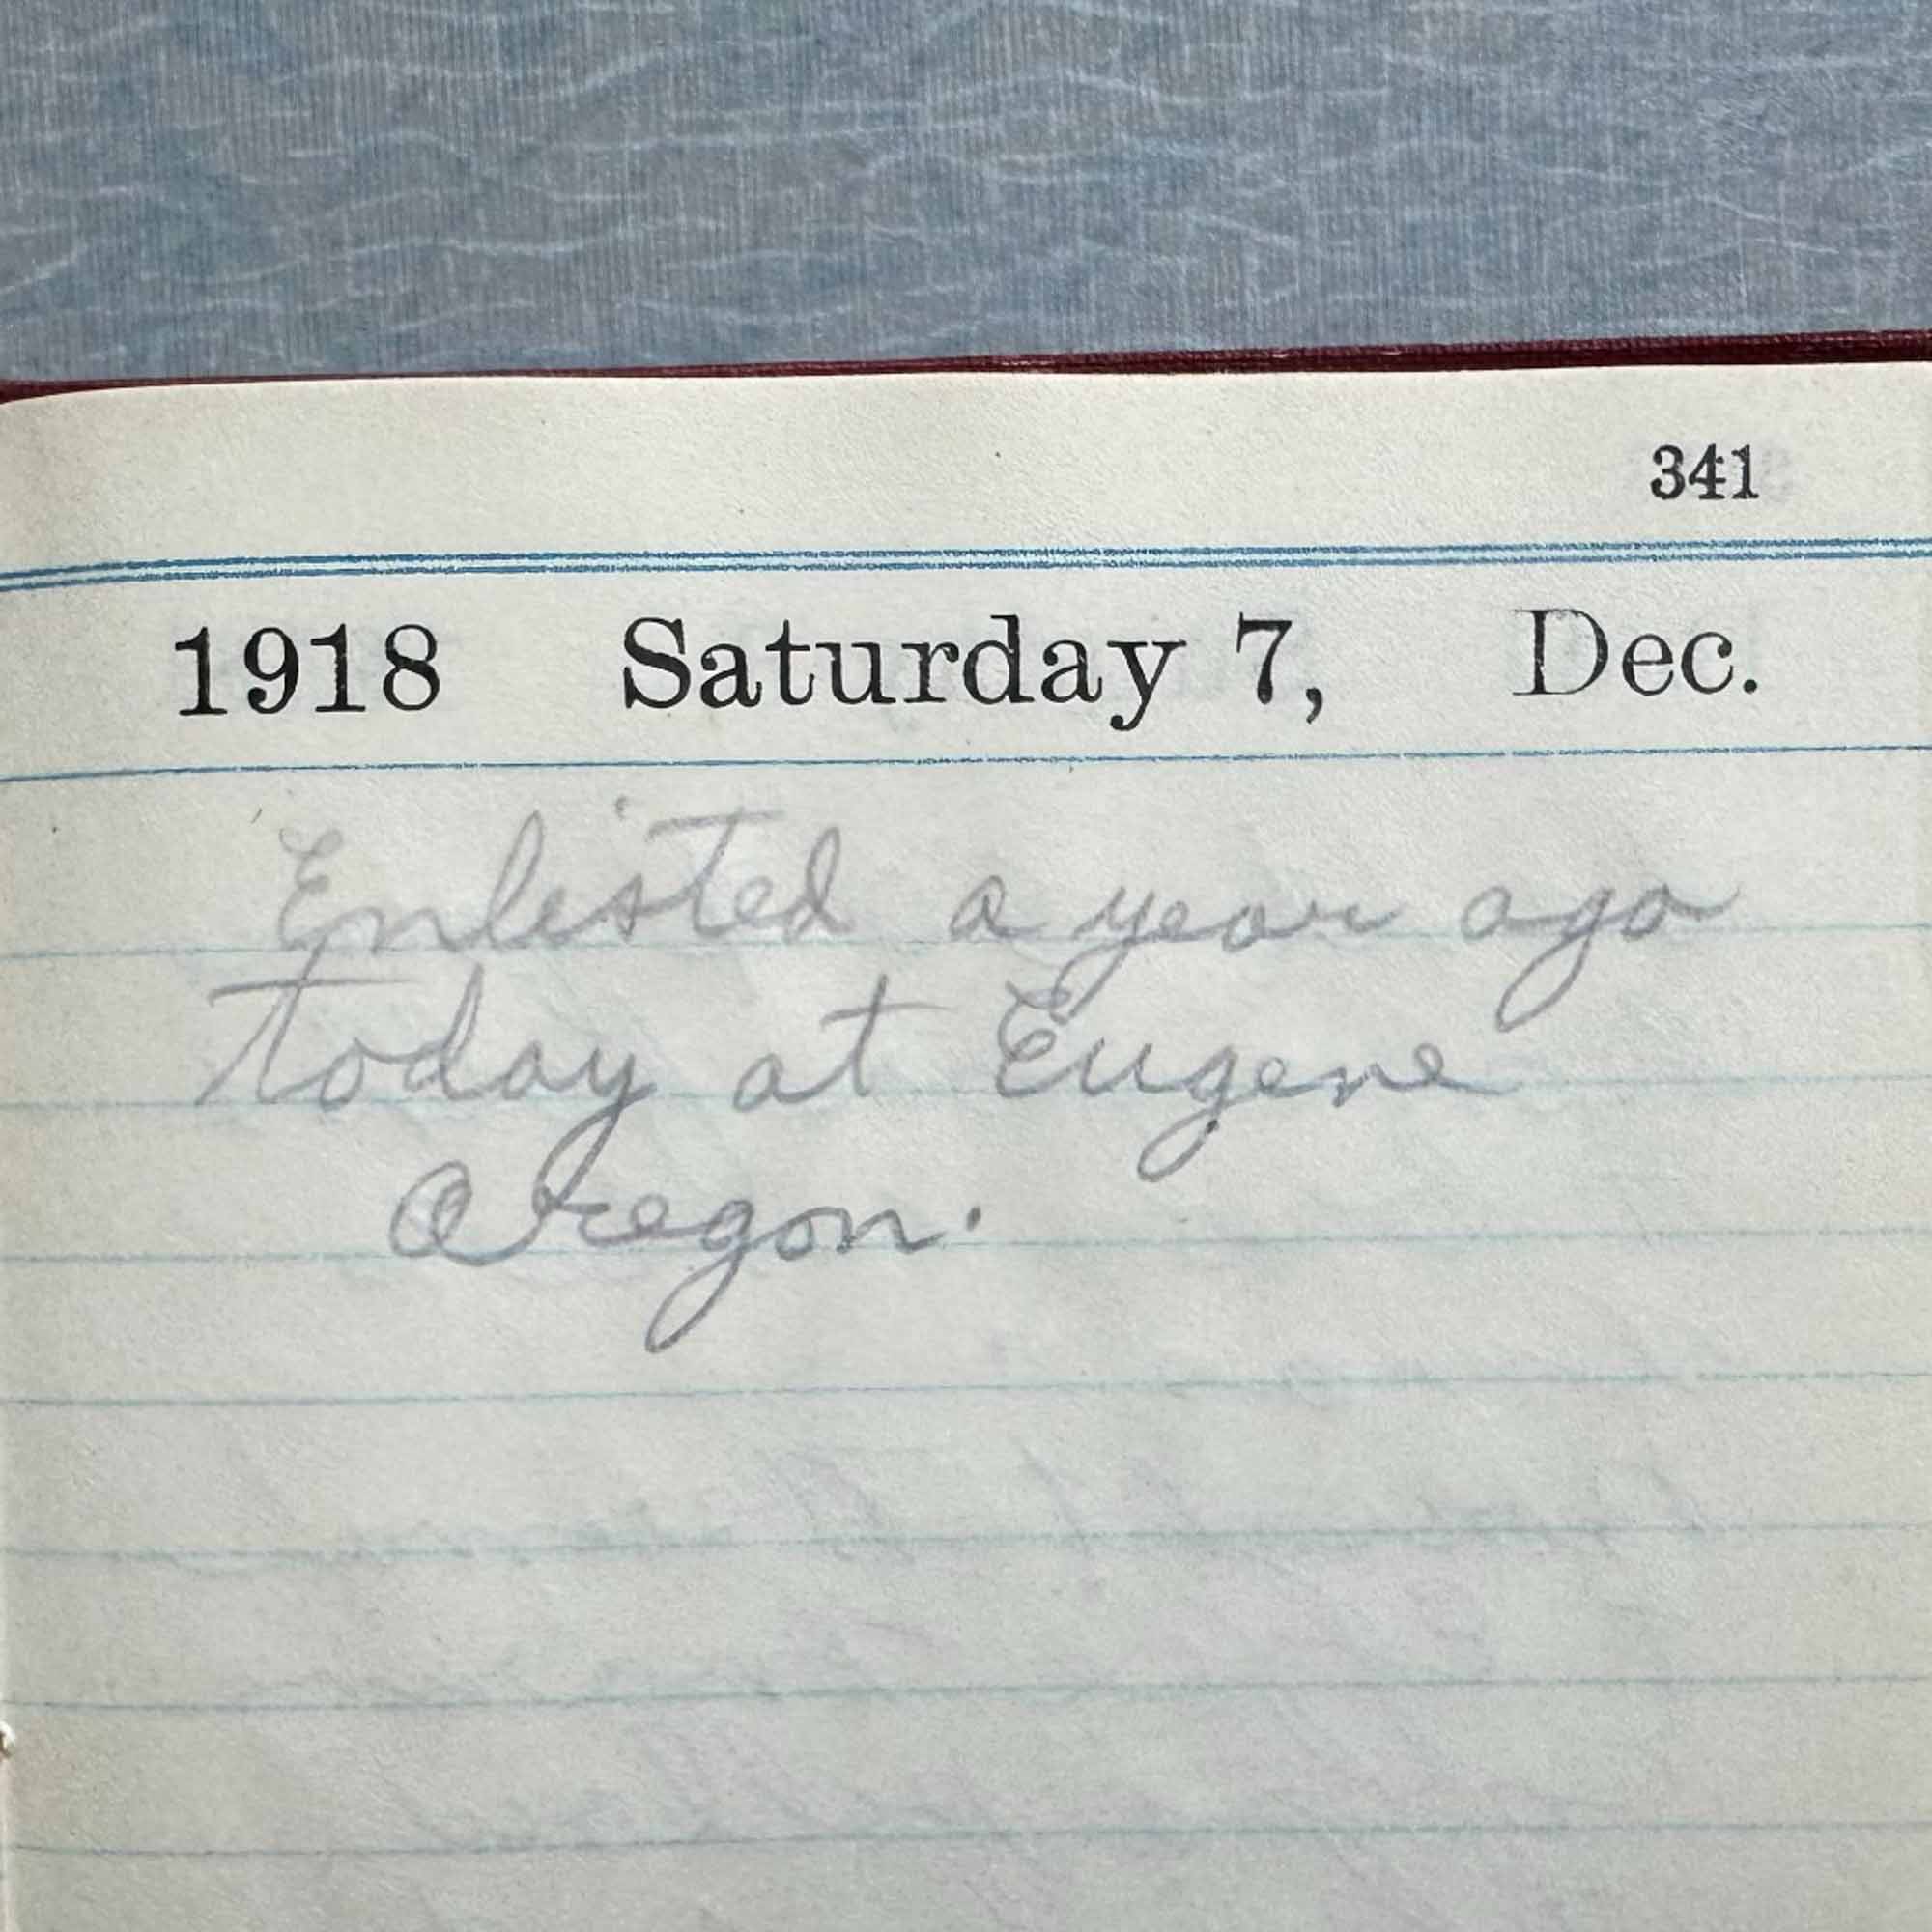 341
1918 Saturday 7, Dec.
Enlisted a year ago
today at Eugene
Oregon.